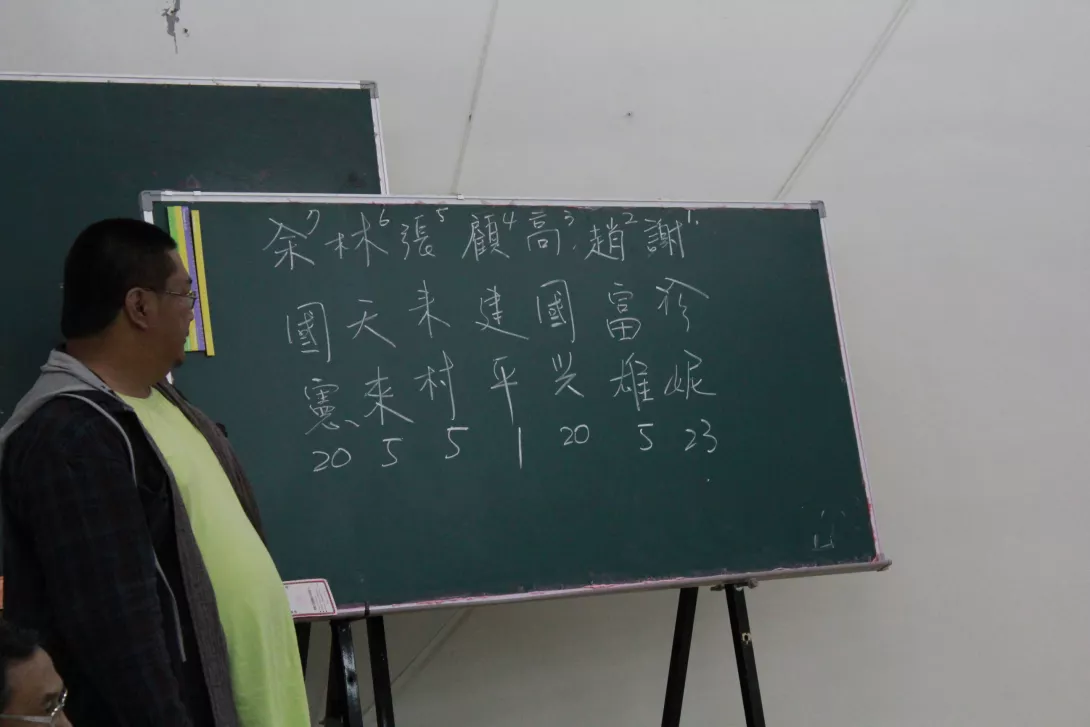 謝1. 珍妮 23
趙2 富雄 5
高3. 國兴 20
顧4 建平 1
張5 来村 5
林6 天来 5
余7 國憲 20